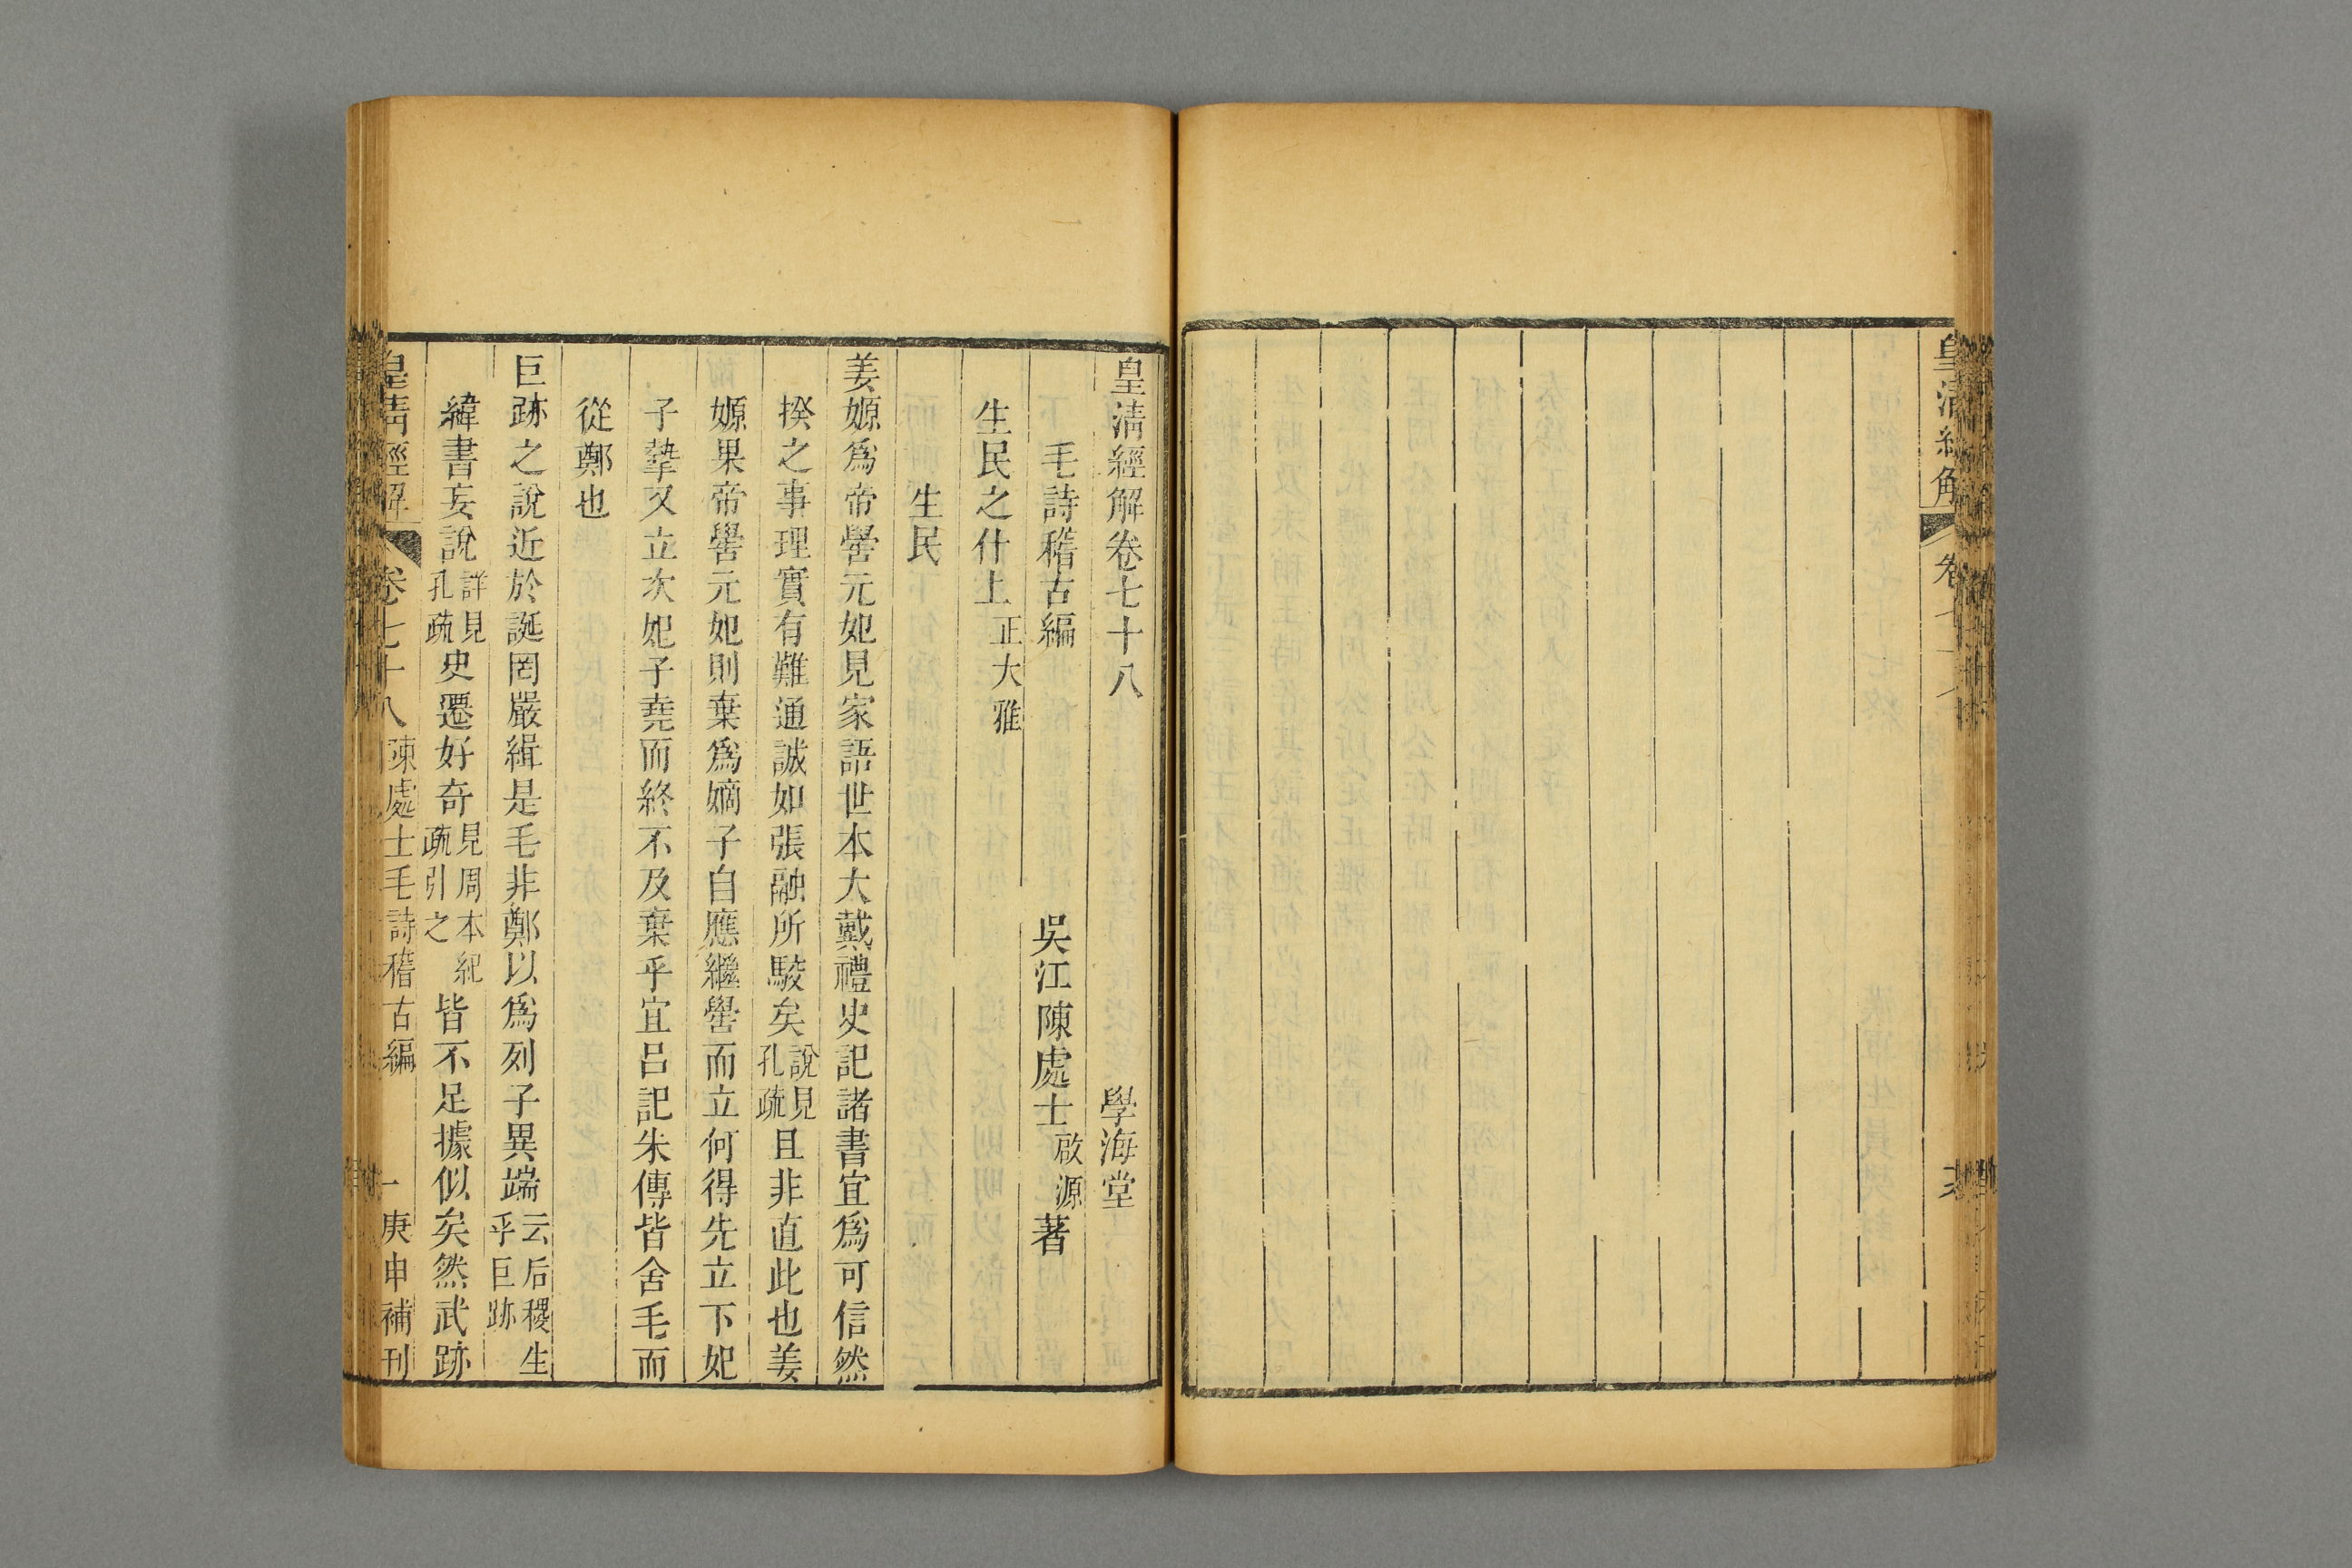 皇清經解卷七十八　學海堂
毛詩稽古編　吳江陳處士啟源著
生民之什上正大雅
生民
姜嫄爲帝嚳元妃見家語世本大戴禮史記諸書宜爲可信然
揆之事理實有難通誠如張融所駁矣說見孔疏且非直此也姜
嫄果帝嚳元妃則棄爲嫡子自應繼嚳而立何得先立下妃
子摯又立次妃子堯而終不及棄乎宜呂記朱傳皆舍毛而
從鄭也
巨跡之說近於誕罔嚴緝是毛非鄭以爲列子異端云后稷生乎巨跡
緯書妄說詳見孔疏史遷好奇見周本紀疏引之皆不足據似矣然武跡
皇清經解　卷七十八　陳處士毛詩稽古編　一　庚申補刊
皇清經解　卷七十